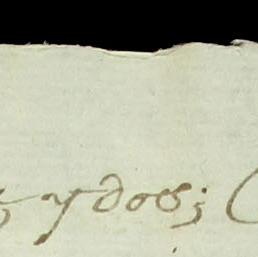 y dos;